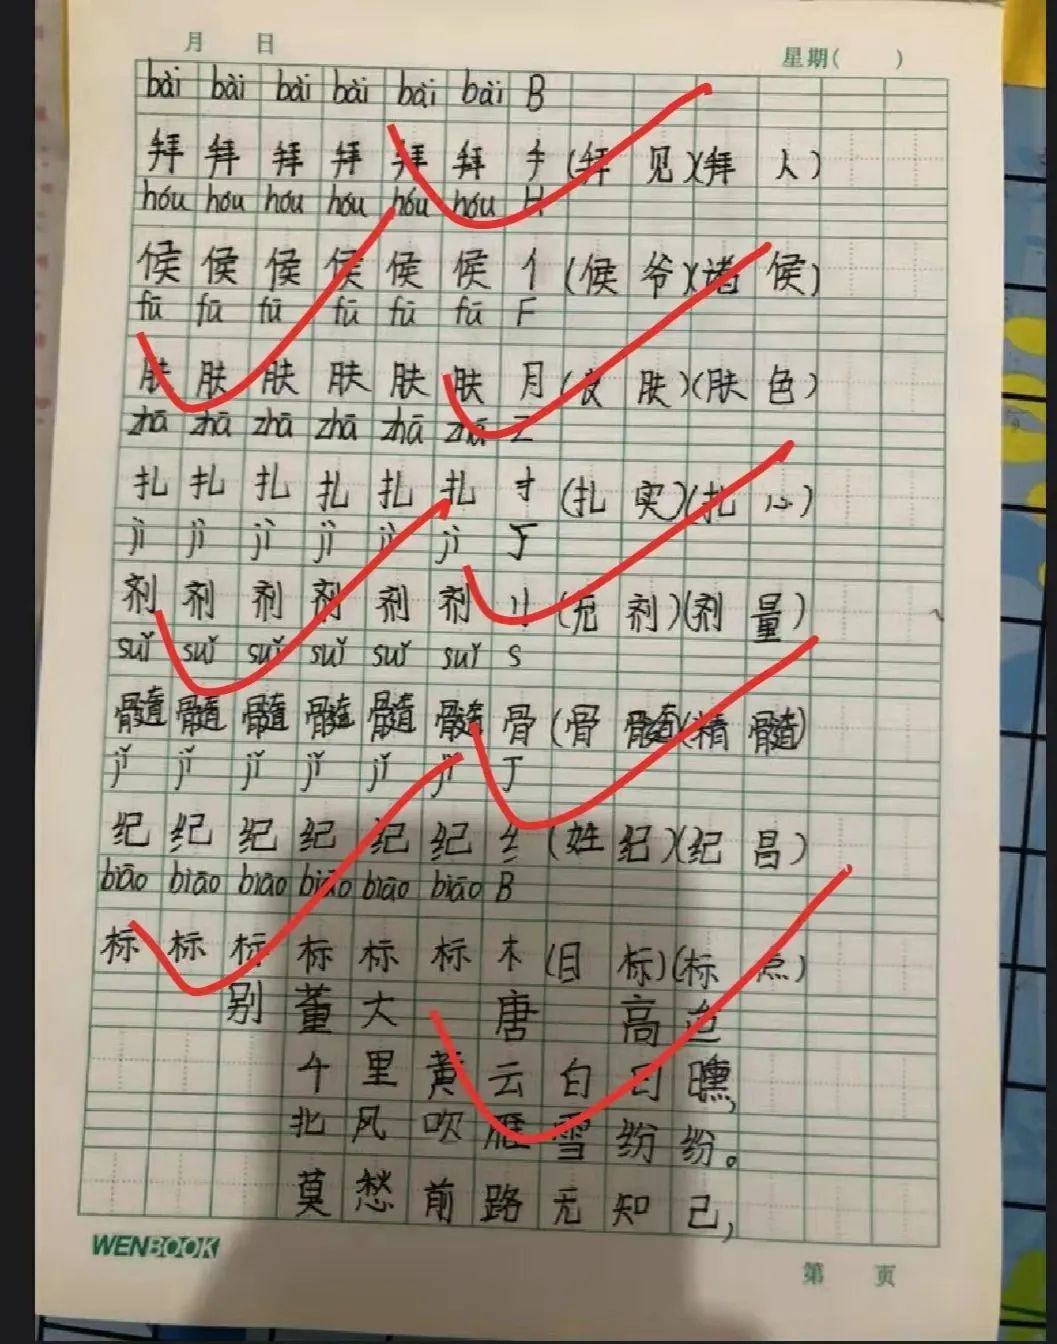 月 日 星期( )
bài bài bài bài bài bài B
拜 拜 拜 拜 拜 拜 手 (拜 见)(拜 人)
hóu hóu hóu hóu hóu hóu H
侯 侯 侯 侯 侯 侯 亻 (侯 爷)(诸 侯)
fū fū fū fū fū fū F
肤 肤 肤 肤 肤 肤 月 (皮 肤)(肤 色)
zhā zhā zhā zhā zhā zhā Z
扎 扎 扎 扎 扎 扎 扌 (扎 实)(扎 心)
jì jì jì jì jì jì J
剂 剂 剂 剂 剂 剂 刂 (无 剂)(剂 量)
suǐ suǐ suǐ suǐ suǐ suǐ S
髓 髓 髓 髓 髓 髓 骨 (骨 髓)(精 髓)
jǐ jǐ jǐ jǐ jǐ jǐ J
纪 纪 纪 纪 纪 纪 纟 (姓 纪)(纪 昌)
biāo biāo biāo biāo biāo biāo B
标 标 标 标 标 标 木 (目 标)(标 点)
别 董 大 唐 高
千 里 黄 云 白 日 曛,
北 风 吹 雁 雪 纷 纷。
莫 愁 前 路 无 知 己,
WENBOOK
第 页